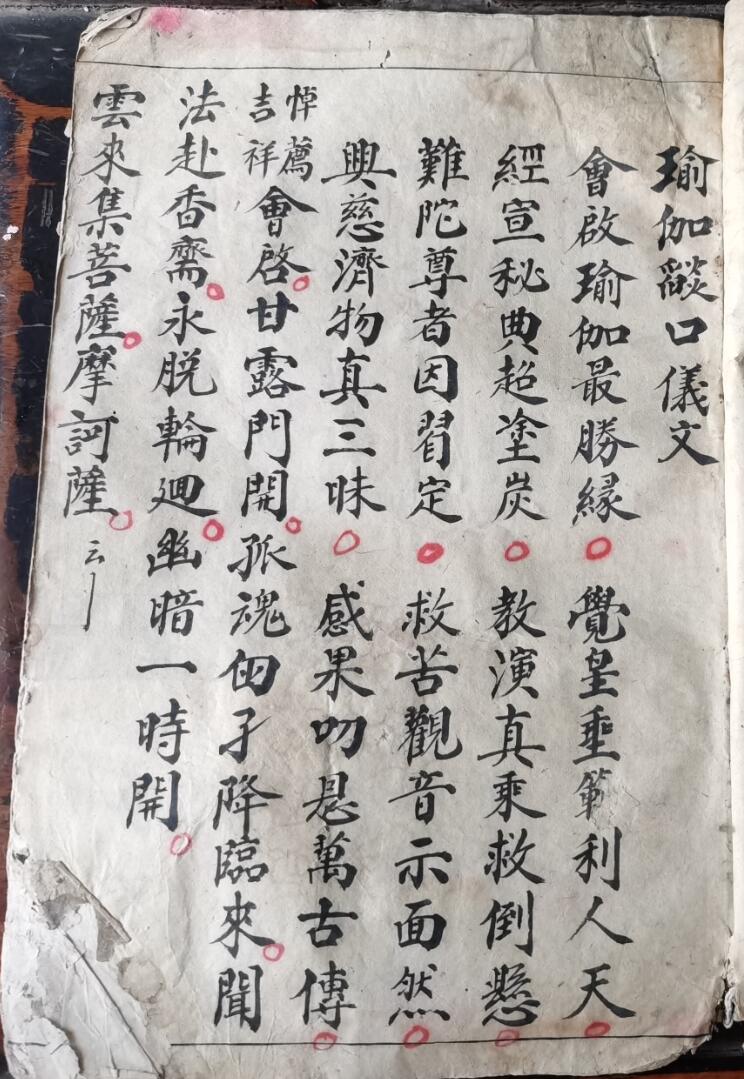 瑜伽燄口儀文
會啟瑜伽最勝緣○覺皇垂範利人天○
經宣秘典超塗炭○教演真乘救倒懸○
難陀尊者因習定○救苦觀音示面然○
興慈濟物真三昧○感果叨恩萬古傳○
悼薦
吉祥
會啓○甘露門開○孤魂降臨來○聞
法赴香齋○永脫輪迴○幽暗一時開○
雲來集菩薩○摩訶薩○云